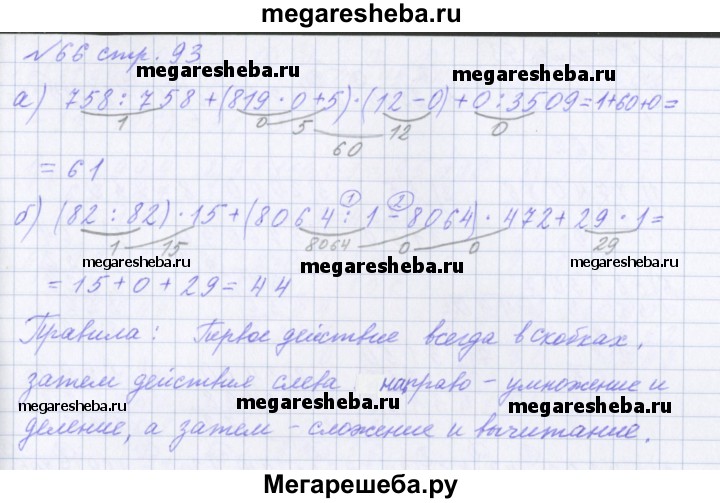 megaresheba.ru
№66 стр. 93
megaresheba.ru
megaresheba.ru
а) 758 : 758 + (819 · 0 + 5) · (12 − 0) + 0 : 3509 = 1 + 60 + 0 =
1 0 5 12 0
60
= 61
megaresheba.ru
megaresheba.ru
1 2
б) (82 : 82) · 15 + (8064 : 1 − 8064) · 472 + 29 · 1 =
1 15 8064 0 0 29
megaresheba.ru
megaresheba.ru
= 15 + 0 + 29 = 44
Правила: Первое действие всегда в скобках,
затем действия слева направо – умножение и
megaresheba.ru
megaresheba.ru
megaresheba.ru
деление, а затем – сложение и вычитание.
Мегарешеба.ру